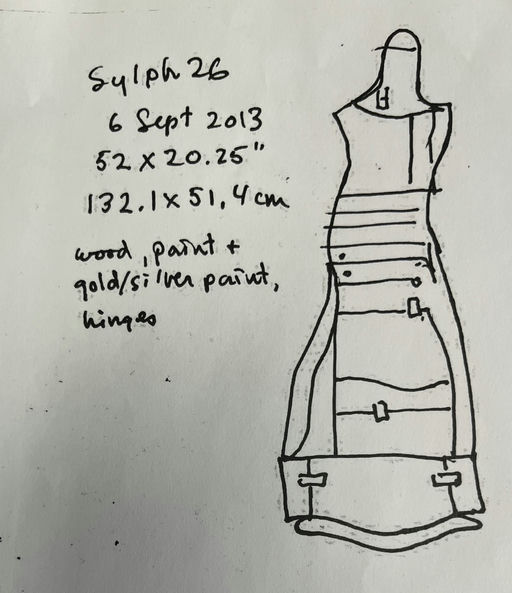 Sylph 26
6 Sept 2013
52 x 20.25"
132.1 x 51.4 cm
wood, paint +
gold/silver paint,
hinges